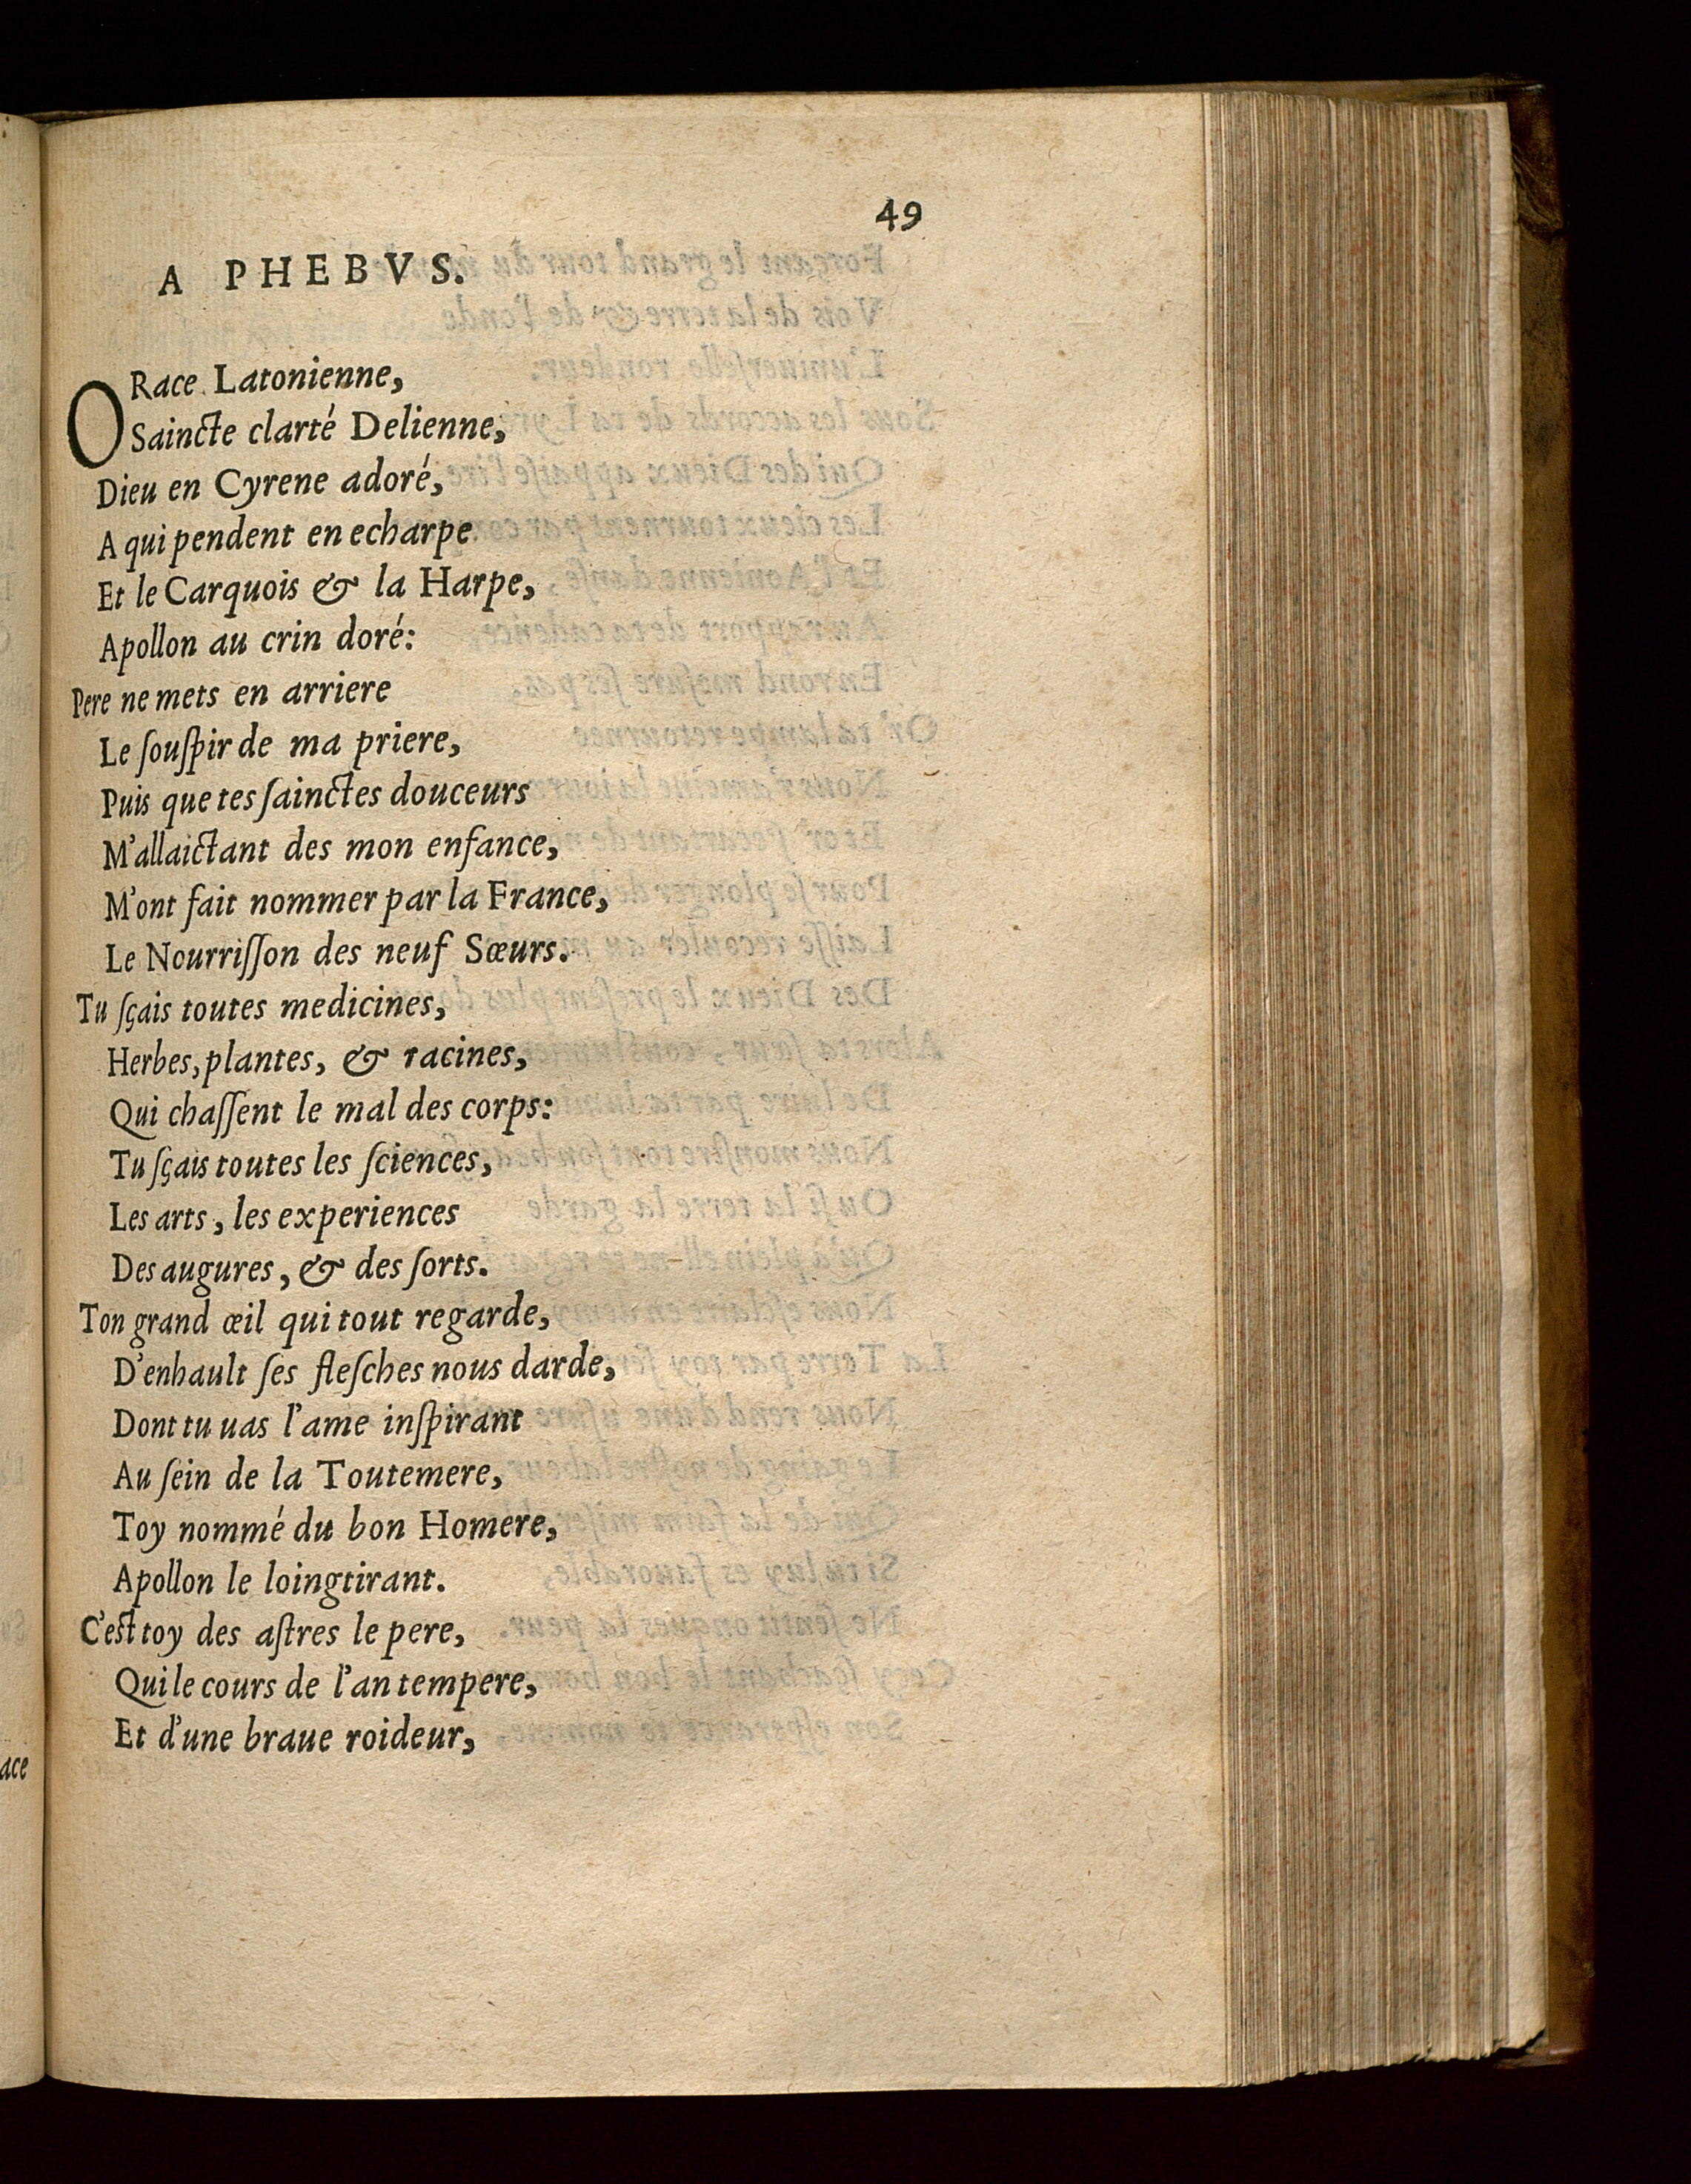 49
A PHEBVS.
O Race Latonienne,
Saincte clarté Delienne,
Dieu en Cyrene adoré,
A qui pendent en echarpe
Et le Carquois & la Harpe,
Apollon au crin doré:
Pere ne mets en arriere
Le ſouſpir de ma priere,
Puis que tes ſainctes douceurs
M'allaictant des mon enfance,
M'ont fait nommer par la France,
Le Nourriſſon des neuf Sœurs.
Tu ſçais toutes medicines,
Herbes, plantes, & racines,
Qui chaſſent le mal des corps:
Tu ſçais toutes les ſciences,
Les arts, les experiences
Des augures, & des ſorts.
Ton grand œil qui tout regarde,
D'enhault ſes fleſches nous darde,
Dont tu uas l'ame inſpirant
Au ſein de la Toutemere,
Toy nommé du bon Homere,
Apollon le loingtirant.
C'est toy des aſtres le pere,
Qui le cours de l'an tempere,
Et d'une braue roideur,
ace